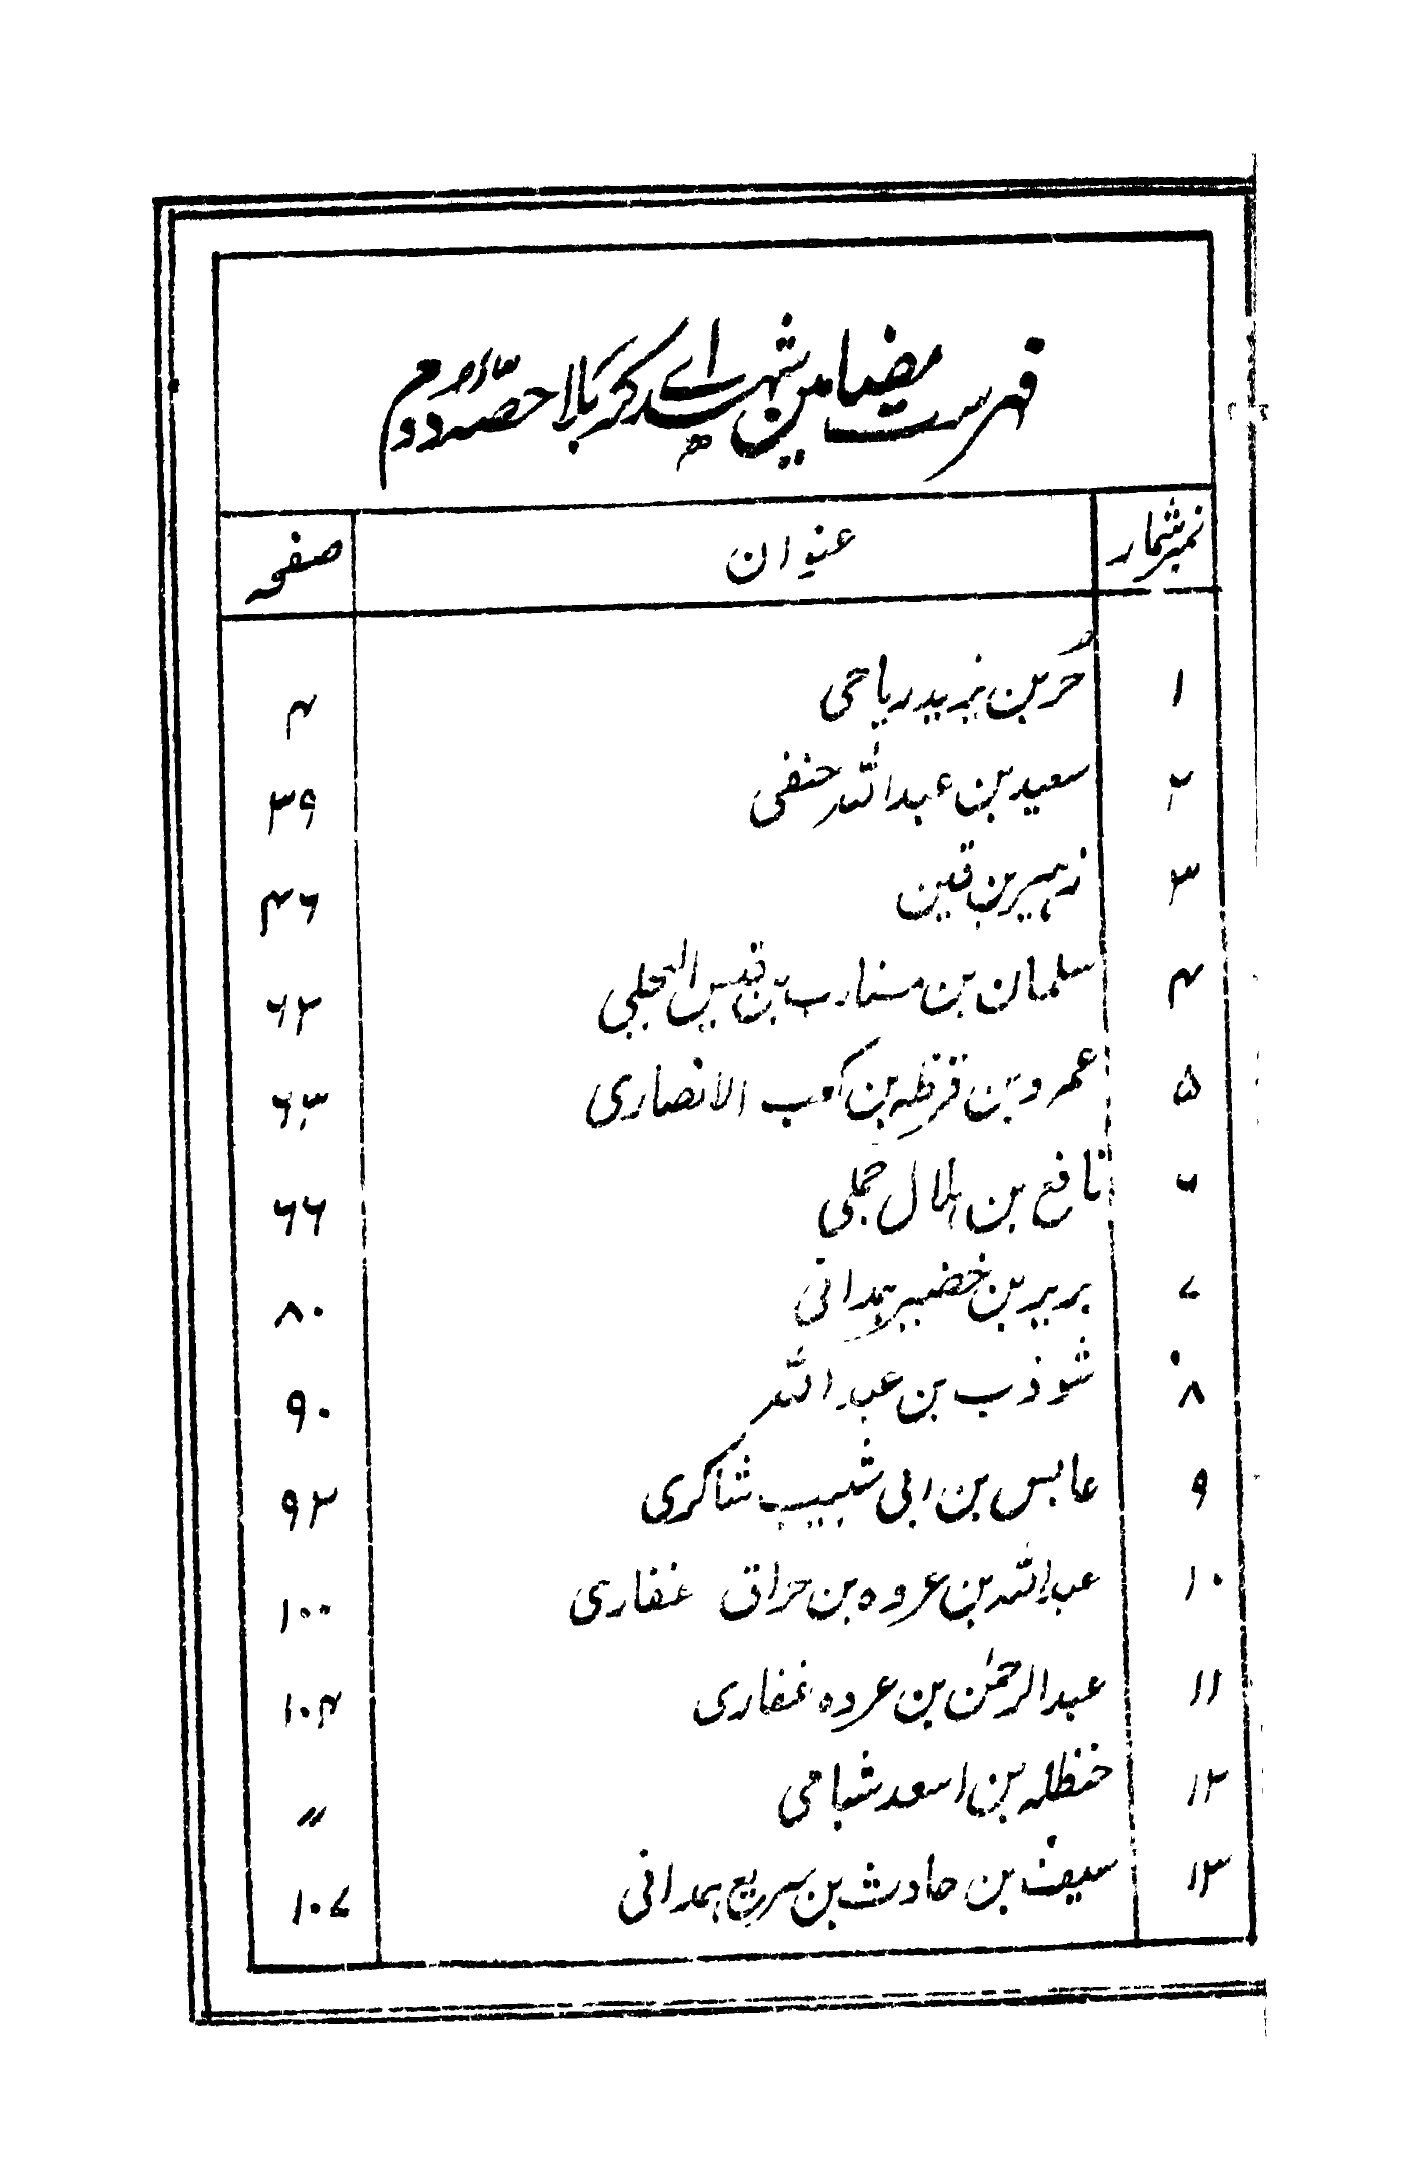 فہرست مضامین شہدائے کربلا حصہ دوم
نمبر شمار عنوان صفحہ
۱ حُر بن یزید ریاحی ۴
۲ سعید بن عبداللہ حنفی ۳۹
۳ زہیر بن قین ۴۶
۴ سلمان بن مضارب بن قیس البجلی ۶۲
۵ عمرو بن قرظہ بن کعب الانصاری ۶۳
۶ نافع بن ہلال جملی ۶۶
۷ بریر بن خضیر ہمدانی ۸۰
۸ شوذب بن عبداللہ ۹۰
۹ عابس بن ابی شبیب شاکری ۹۲
۱۰ عبداللہ بن عروہ بن حراق غفاری ۱۰۰
۱۱ عبدالرحمٰن بن عروہ غفاری ۱۰۴
۱۲ حنظلہ بن اسعد شبامی 〃
۱۳ سیف بن حارث بن سریع ہمدانی ۱۰۷